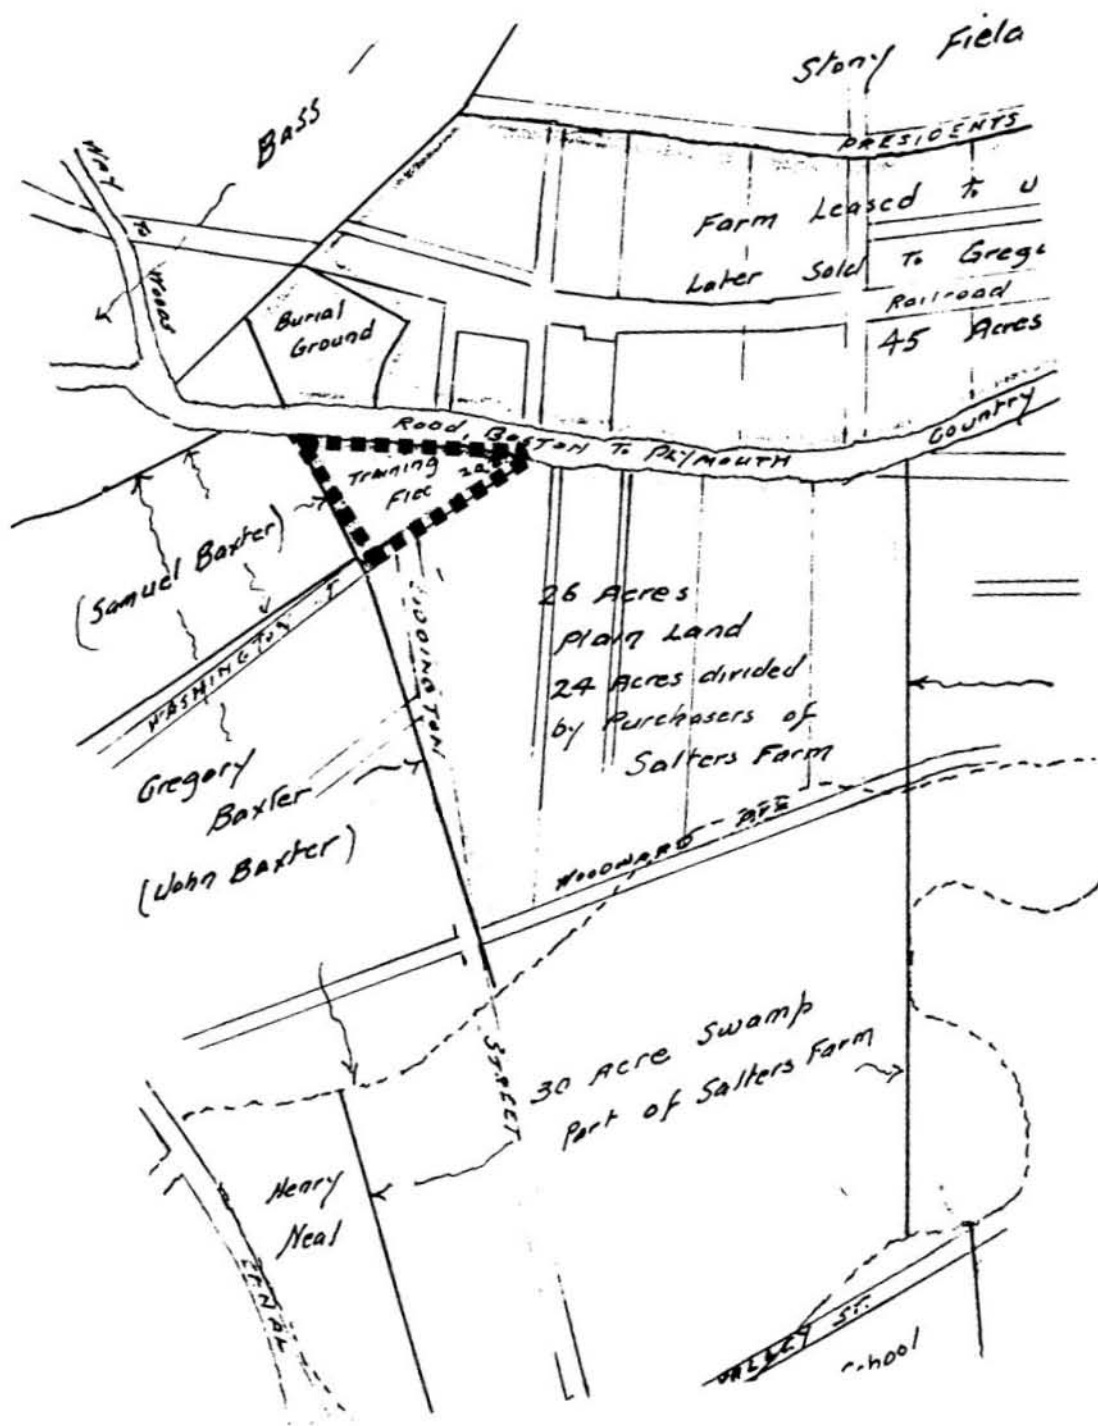 Stony Field
BASS
PRESIDENTS
WAY
To
WOODS
Farm Leased To U
Later Sold To Grego
Railroad
45 Acres
Burial
Ground
Road, BOSTON To PLYMOUTH
COUNTRY
Training
Fiec 2a
(Samuel Baxter)
WASHINGTON
26 Acres
Plain Land
24 Acres divided
by Purchasers of
Salters Farm
Gregory
Baxter
(John Baxter)
WOODWARD AVE
STREET
30 Acre Swamp
Part of Salters Farm
Henry
Neal
CANAL
VALLEY ST.